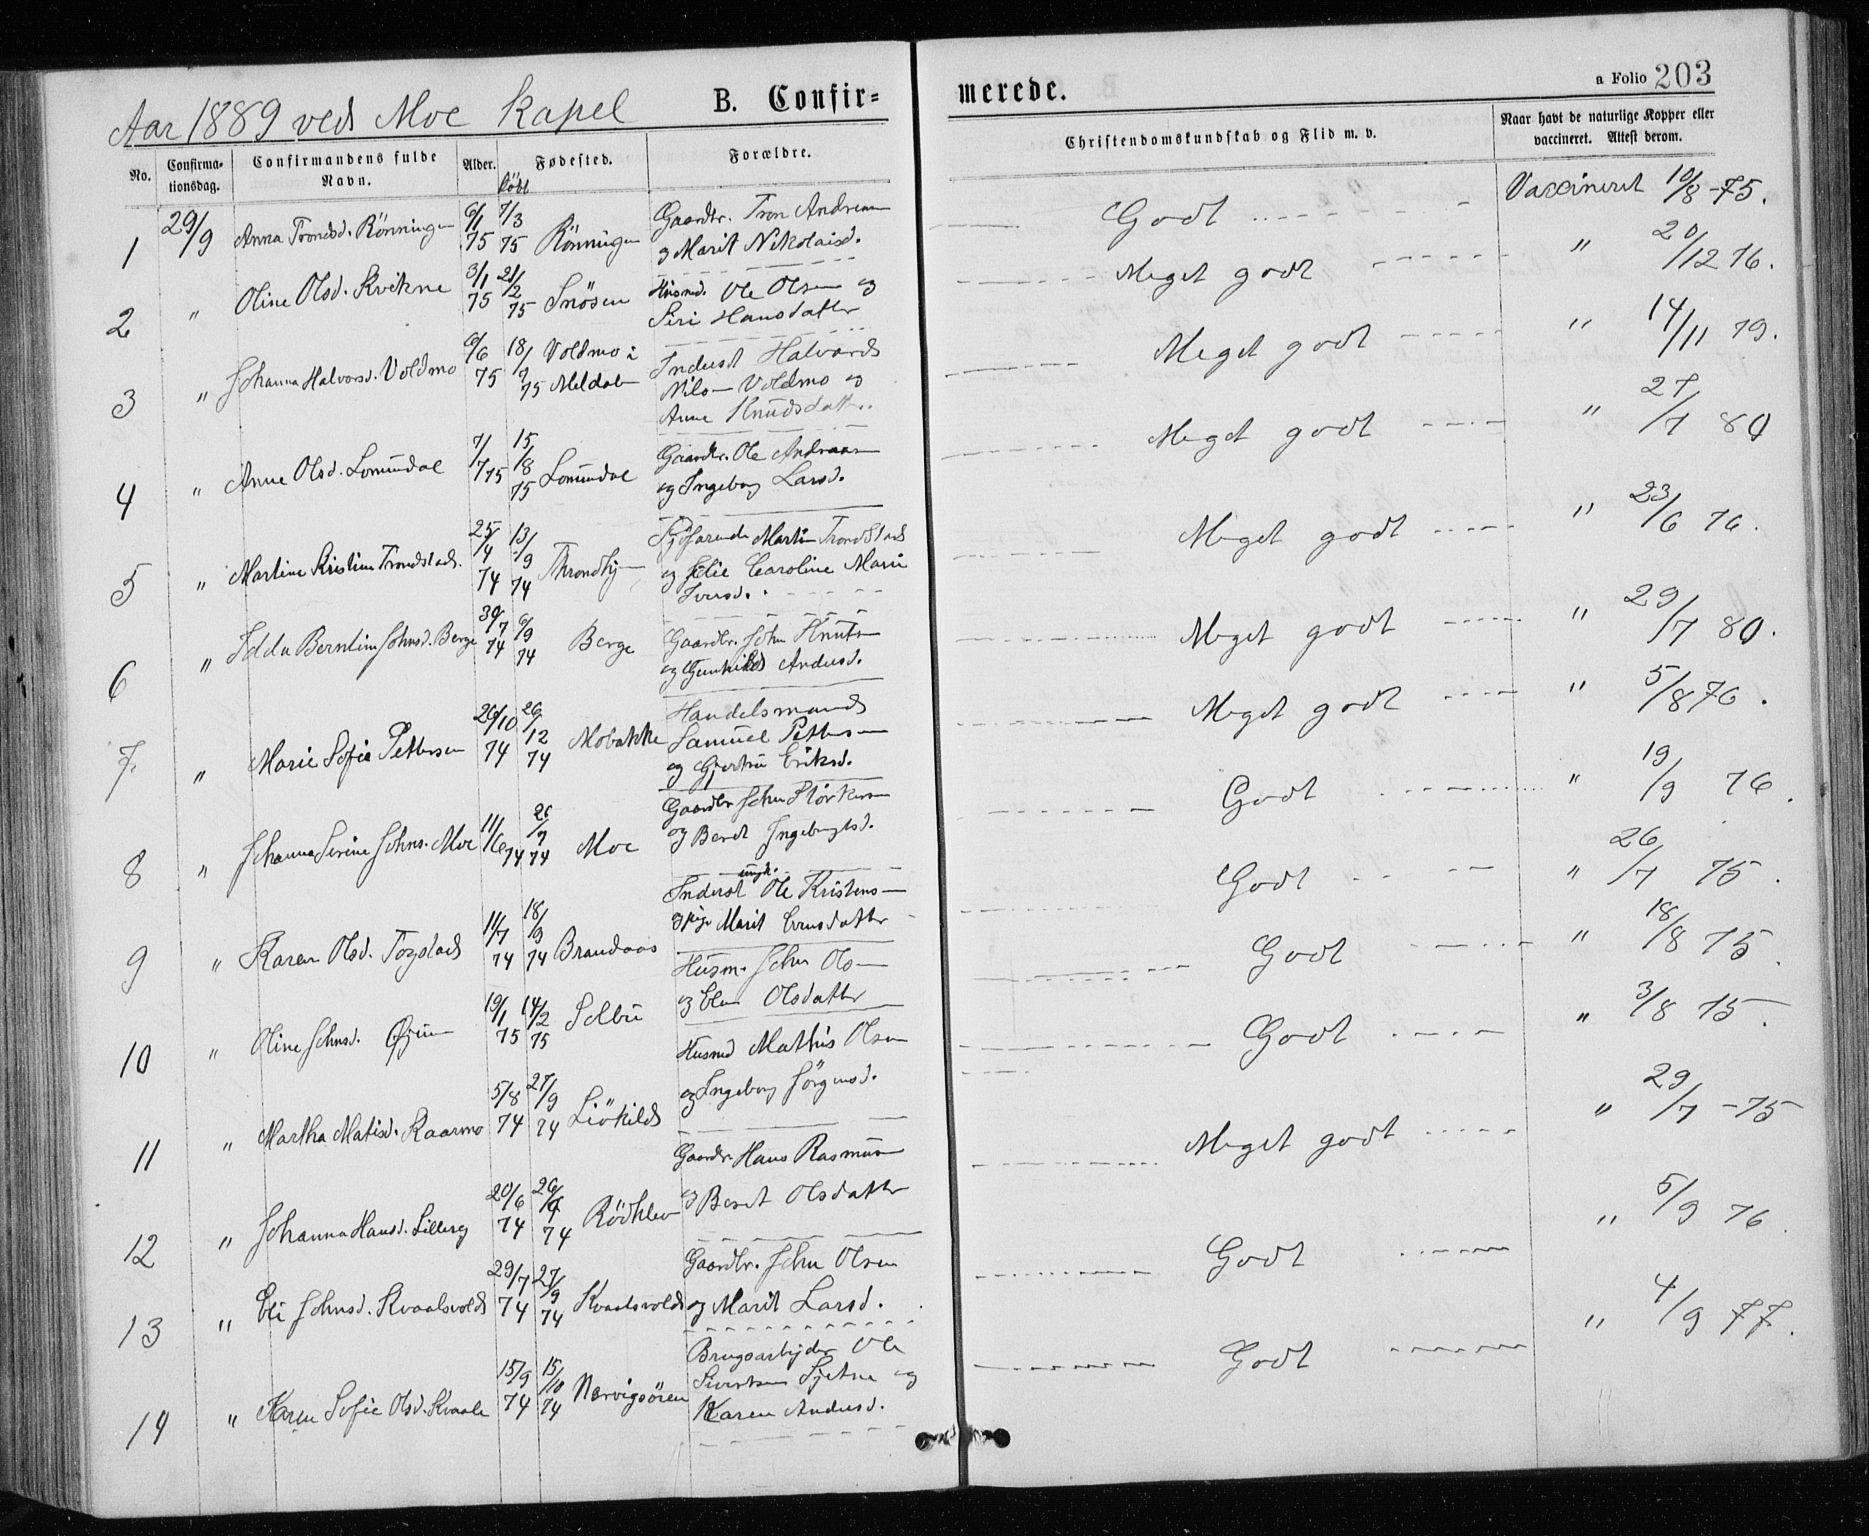 Aar 1889 ved Moe Kapel B. Confir= merede. a Folio 203
No. Confirma-tionsdag. Confirmandens fulde Navn. Alder. Födt Fødested. Forældre. Christendomskundskab og Flid m. v. Naar havt de naturlige Kopper eller vaccineret. Attest derom.
1 29/9 Anna Trondsd. Rönningen 6/1 75 7/3 75 Rönningen Gaardbr. Tron Andreassen Godt Vaccineret 10/8 -75.
og Marit Nikolaisd.
2 " Oline Olsd. Kvikne 3/1 75 21/2 75 Snösen Husmd. Ole Olsen og Meget godt " 20/12 76.
Siri Hansdatter
3 " Johanna Halvorsd. Voldmo 6/6 75 18/7 75 Voldmo i Meldalen Inderst Halvord Meget godt " 14/11 79.
Nilsen Voldmo og
Anne Knudsdatter.
4 " Anne Olsd. Lomundal 7/7 75 15/8 75 Lomundal Gaardbr. Ole Andreassen Meget godt " 27/7 80
og Ingeborg Larsd.
5 " Martine Kristine Trondstad. 25/4 74 13/9 74 Throndhj Sjöfarende Martin Trondstad Meget godt " 23/6 76.
og Caroline Marie
Iversd.
6 " Idda Berntine Johnsd. Berge 30/7 74 6/9 74 Berge Gaardbr. John Knutsen Meget godt " 29/7 80.
og Gunhild Andersd.
7. " Marie Sofie Pettersen 26/10 74 26/12 74 Mobakke Handelsmand Meget godt " 5/8 76.
Samuel Pettersen
og Gjertru Eriksd.
8 " Johanna Serine Johns. Moe 11/6 74 26/7 74 Moe Gaardbr John Störkersen Godt " 19/9 76.
og Beret Ingebrigtsd.
9 " Karen Olsd. Togstad 11/7 74 18/9 74 Brandaas Inderst ungk. Ole Kristensen Godt " 26/7 75.
og pige Marit Arnsdatter
10 " Oline Johnsd. Øyum 19/1 75 14/2 75 Selbu Husm. John Olsen Godt " 18/8 75.
og Elen Olsdatter
11 " Martha Matisd. Kaarmo 5/8 74 27/9 74 Liökild Husmd Mathis Olsen Godt " 3/8 75.
og Ingeborg Jörgensd.
12 " Johanna Hansd. Lilleng 20/6 74 26/7 74 Rödklev Gaardbr. Hans Rasmussen Meget godt " 29/7 -75
og Beret Olsdatter
13 " Eli Johnsd. Kvaalsvold 29/7 74 27/9 74 Kvaalsvold Gaardbr. John Olsen Godt " 5/9 76
og Marit Larsd.
14 " Karen Sofie Olsd. Kvaale 15/9 74 15/10 74 Nervigsören Brugsarbejder Ole Godt " 4/9 77.
Sivertsen Sjetne og
Karen Andersd.